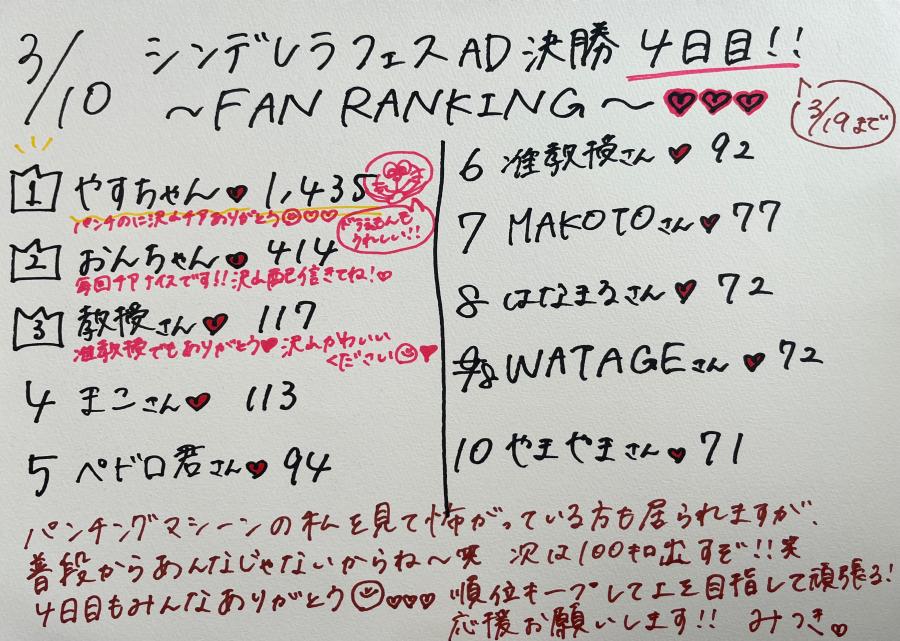 3/10 シンデレラフェスAD決勝 4日目!!
～FAN RANKING～
3/19まで
1 やすちゃん♥ 1,435
パンチのに沢山チアありがとう☺♡♡♡
ドラえもんも
うれしい!!
2 おんちゃん♥ 414
毎回チアナイスです!!沢山配信きてね!♡
3 教授さん♥ 117
准教授でもありがとう♥沢山かわいい
ください☺♥
4 まこさん♥ 113
5 ペドロ君さん♥ 94
6 准教授さん♥ 92
7 MAKOTOさん♥ 77
8 はなまるさん♥ 72
8 WATAGEさん♥ 72
10 やまやまさん♥ 71
パンチングマシーンの私を見て怖がっている方も居られますが、
普段からあんなじゃないからね～笑 次は100キロ出すぞ!!笑
4日目もみんなありがとう☺♡♡♡ 順位キープして上を目指して頑張る!
応援お願いします!! みつき♡